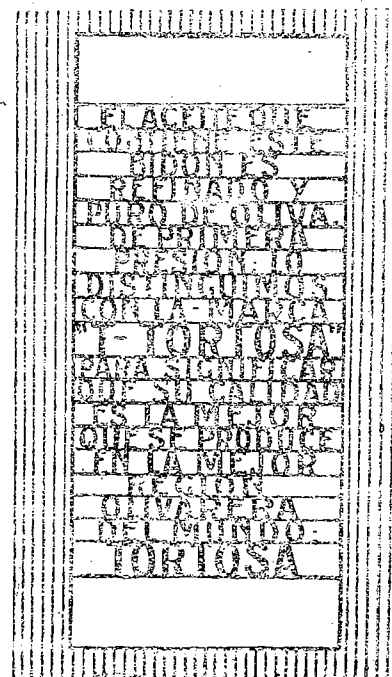 EL ACEITE QUE
CONTIENE ESTE
BIDON ES
REFINADO Y
PURO DE OLIVA
DE PRIMERA
PRESION. LO
DISTINGUIMOS
CON LA MARCA
"Y-TORTOSA"
PARA SIGNIFICAR
QUE SU CALIDAD
ES LA MEJOR
QUE SE PRODUCE
EN LA MEJOR
REGION
OLIVARERA
DEL MUNDO:
TORTOSA